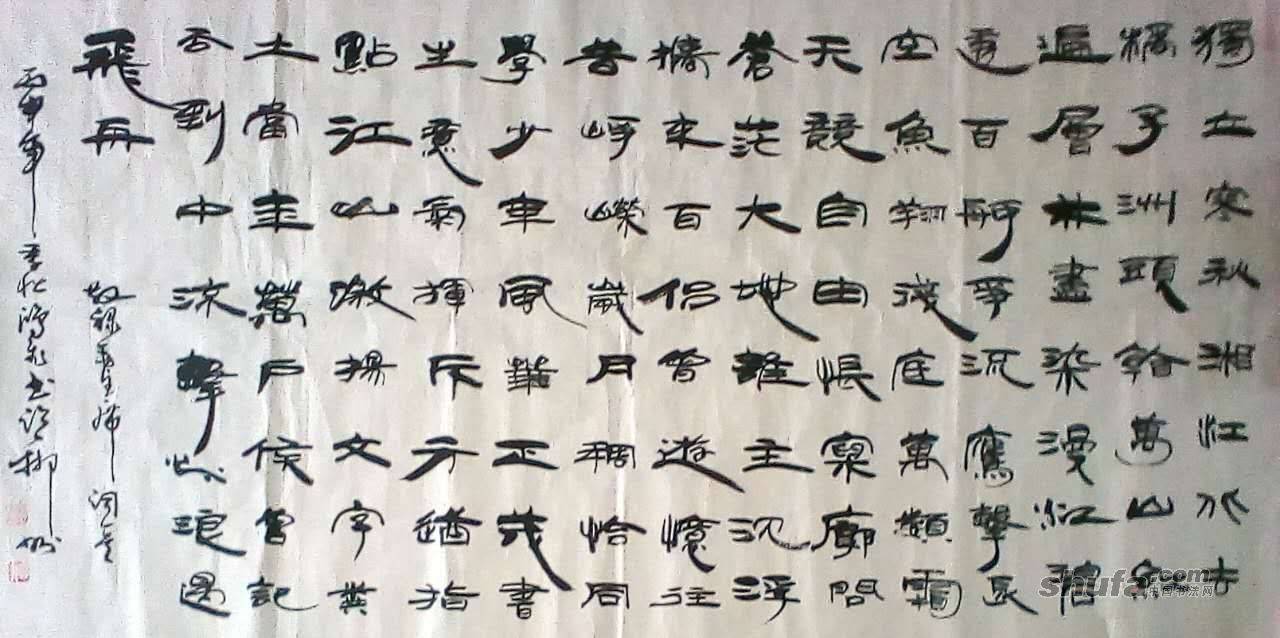 獨立寒秋湘江北去
橘子洲頭看萬山紅
遍層林盡染漫江碧
透百舸爭流鷹擊長
空魚翔淺底萬類霜
天競自由悵寥廓問
蒼茫大地誰主沉浮
攜來百侶曾遊憶往
昔崢嶸歲月稠恰同
學少年風華正茂書
生意氣揮斥方遒指
點江山激揚文字糞
土當年萬戶侯曾記
否到中流擊水浪遏
飛舟
敬錄毛主席詞
丙申年書於柳州
shufa.com
中国书法网